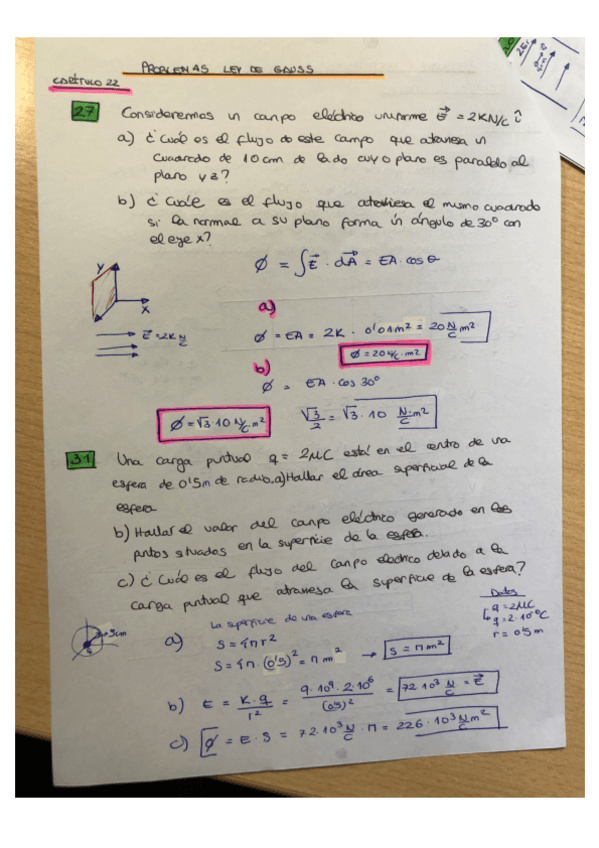 PROBLEMAS LEY DE GAUSS
CAPÍTULO 22
27 Consideremos un campo eléctrico uniforme E⃗ = 2KN/C î
a) ¿Cuál es el flujo de este campo que atraviesa un
cuadrado de 10cm de lado cuyo plano es paralelo al
plano yz?
b) ¿Cuál es el flujo que atraviesa el mismo cuadrado
si la normal a su plano forma un ángulo de 30º con
el eje x?
Y
X
E⃗ = 2K N/C
Ø = ∫E⃗ · dA⃗ = EA · cos θ
a)
Ø = EA = 2K · 0'01m² = 20 N/C m²
Ø = 20 N/C · m²
b)
Ø = EA · cos 30º
Ø = √3 · 10 N/C · m²
√3/2 = √3 · 10 N/C · m²
31 Una carga puntual q = 2µC está en el centro de una
esfera de 0'5m de radio. a) Hallar el área superficial de la
esfera
b) Hallar el valor del campo eléctrico generado en los
puntos situados en la superficie de la esfera.
c) ¿Cuál es el flujo del campo eléctrico debido a la
carga puntual que atraviesa la superficie de la esfera?
Datos
q = 2µC
r = 0'5m
La superficie de una esfera
a) S = 4πr²
S = 4π · (0'5)² = π m² → S = π m²
b) E = K · q / r² = 9 · 10⁹ · 2 · 10⁶ / (0'5)² = 72 · 10³ N/C = E⃗
c) Ø = E · S = 72 · 10³ N/C · π = 226 · 10³ N/C m²